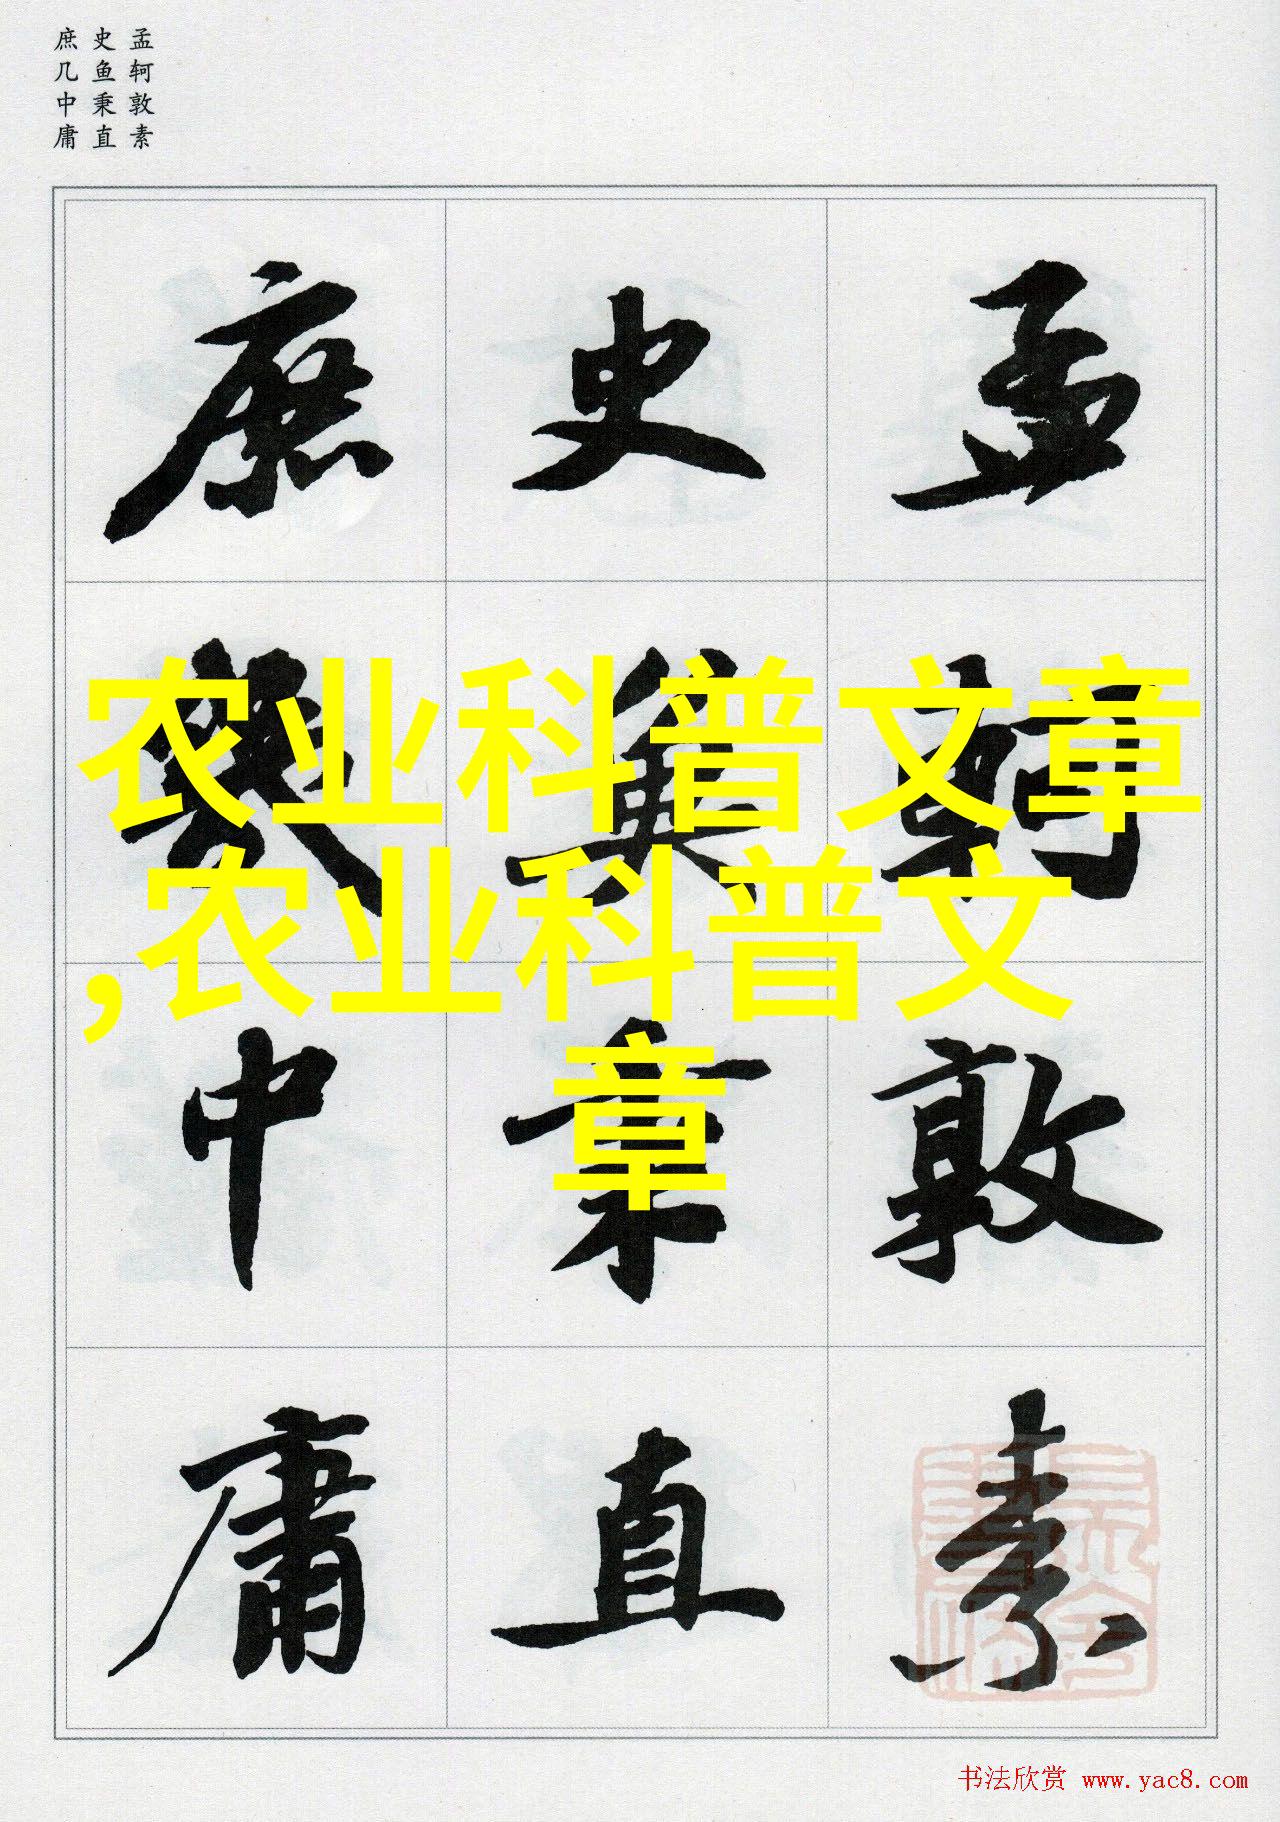 孟轲敦素
史鱼秉直
庶几中庸
孟軻敦素
史魚秉直
庶幾中庸
农业科普文章
,农业科普文
章
书法欣赏 www.yac8.com